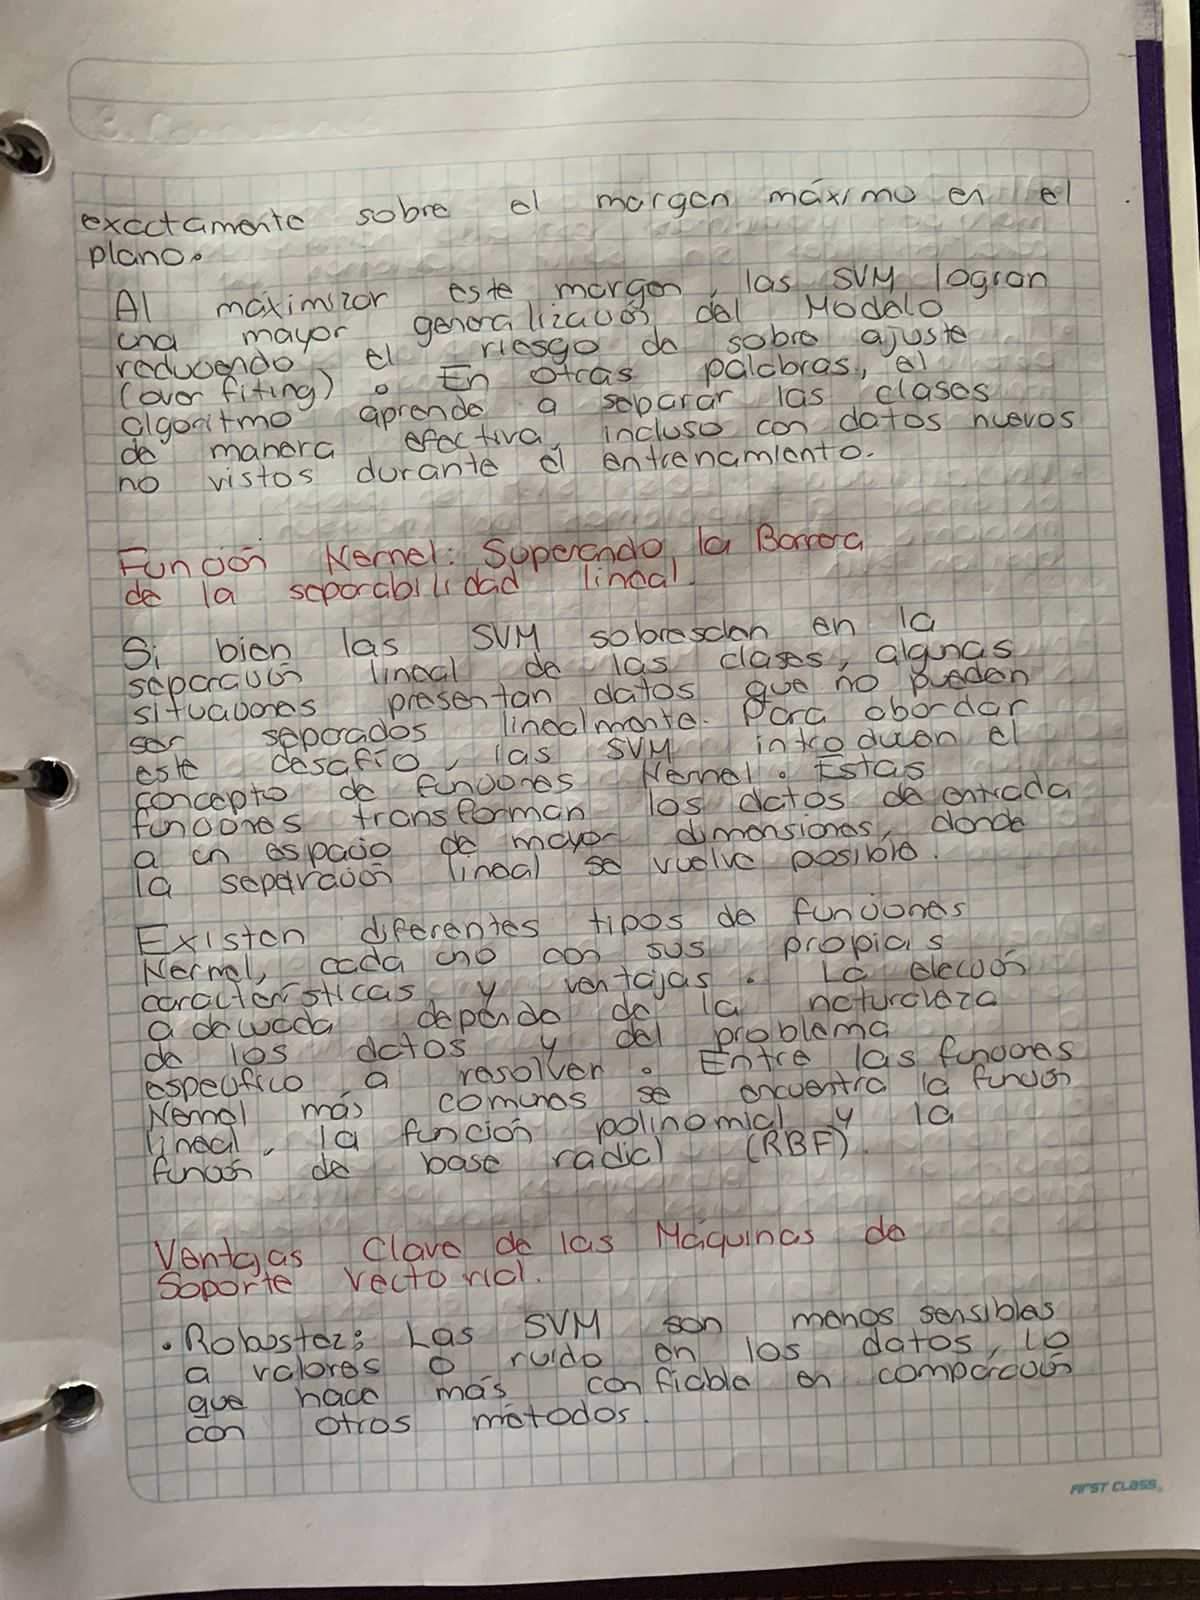 exactamente sobre el margen máximo en el
plano.
Al maximizar este margen, las SVM logran
una mayor generalización del Modelo
reduciendo el riesgo de sobre ajuste
(over fiting). En otras palabras, el
algoritmo aprende a separar las clases
de manera efectiva, incluso con datos nuevos
no vistos durante el entrenamiento.
Función Kernel: Superando la Barrera
de la separabilidad lineal.
Si bien las SVM sobresalen en la
separación lineal de las clases, algunas
situaciones presentan datos que no pueden
ser separados linealmente. Para abordar
este desafío, las SVM introducen el
concepto de funciones Kernel. Estas
funciones transforman los datos de entrada
a un espacio de mayor dimensiones, donde
la separación lineal se vuelve posible.
Existen diferentes tipos de funciones
Kernel, cada uno con sus propias
características y ventajas. La elección
adecuada depende de la naturaleza
de los datos y del problema
específico a resolver. Entre las funciones
Kernel más comunes se encuentra la función
lineal, la función polinomial y la
función de base radial (RBF).
Ventajas Clave de las Máquinas de
Soporte Vectorial.
• Robustez: Las SVM son menos sensibles
a valores o ruido en los datos, lo
que hace más confiable en comparación
con otros métodos.
FIRST CLASS